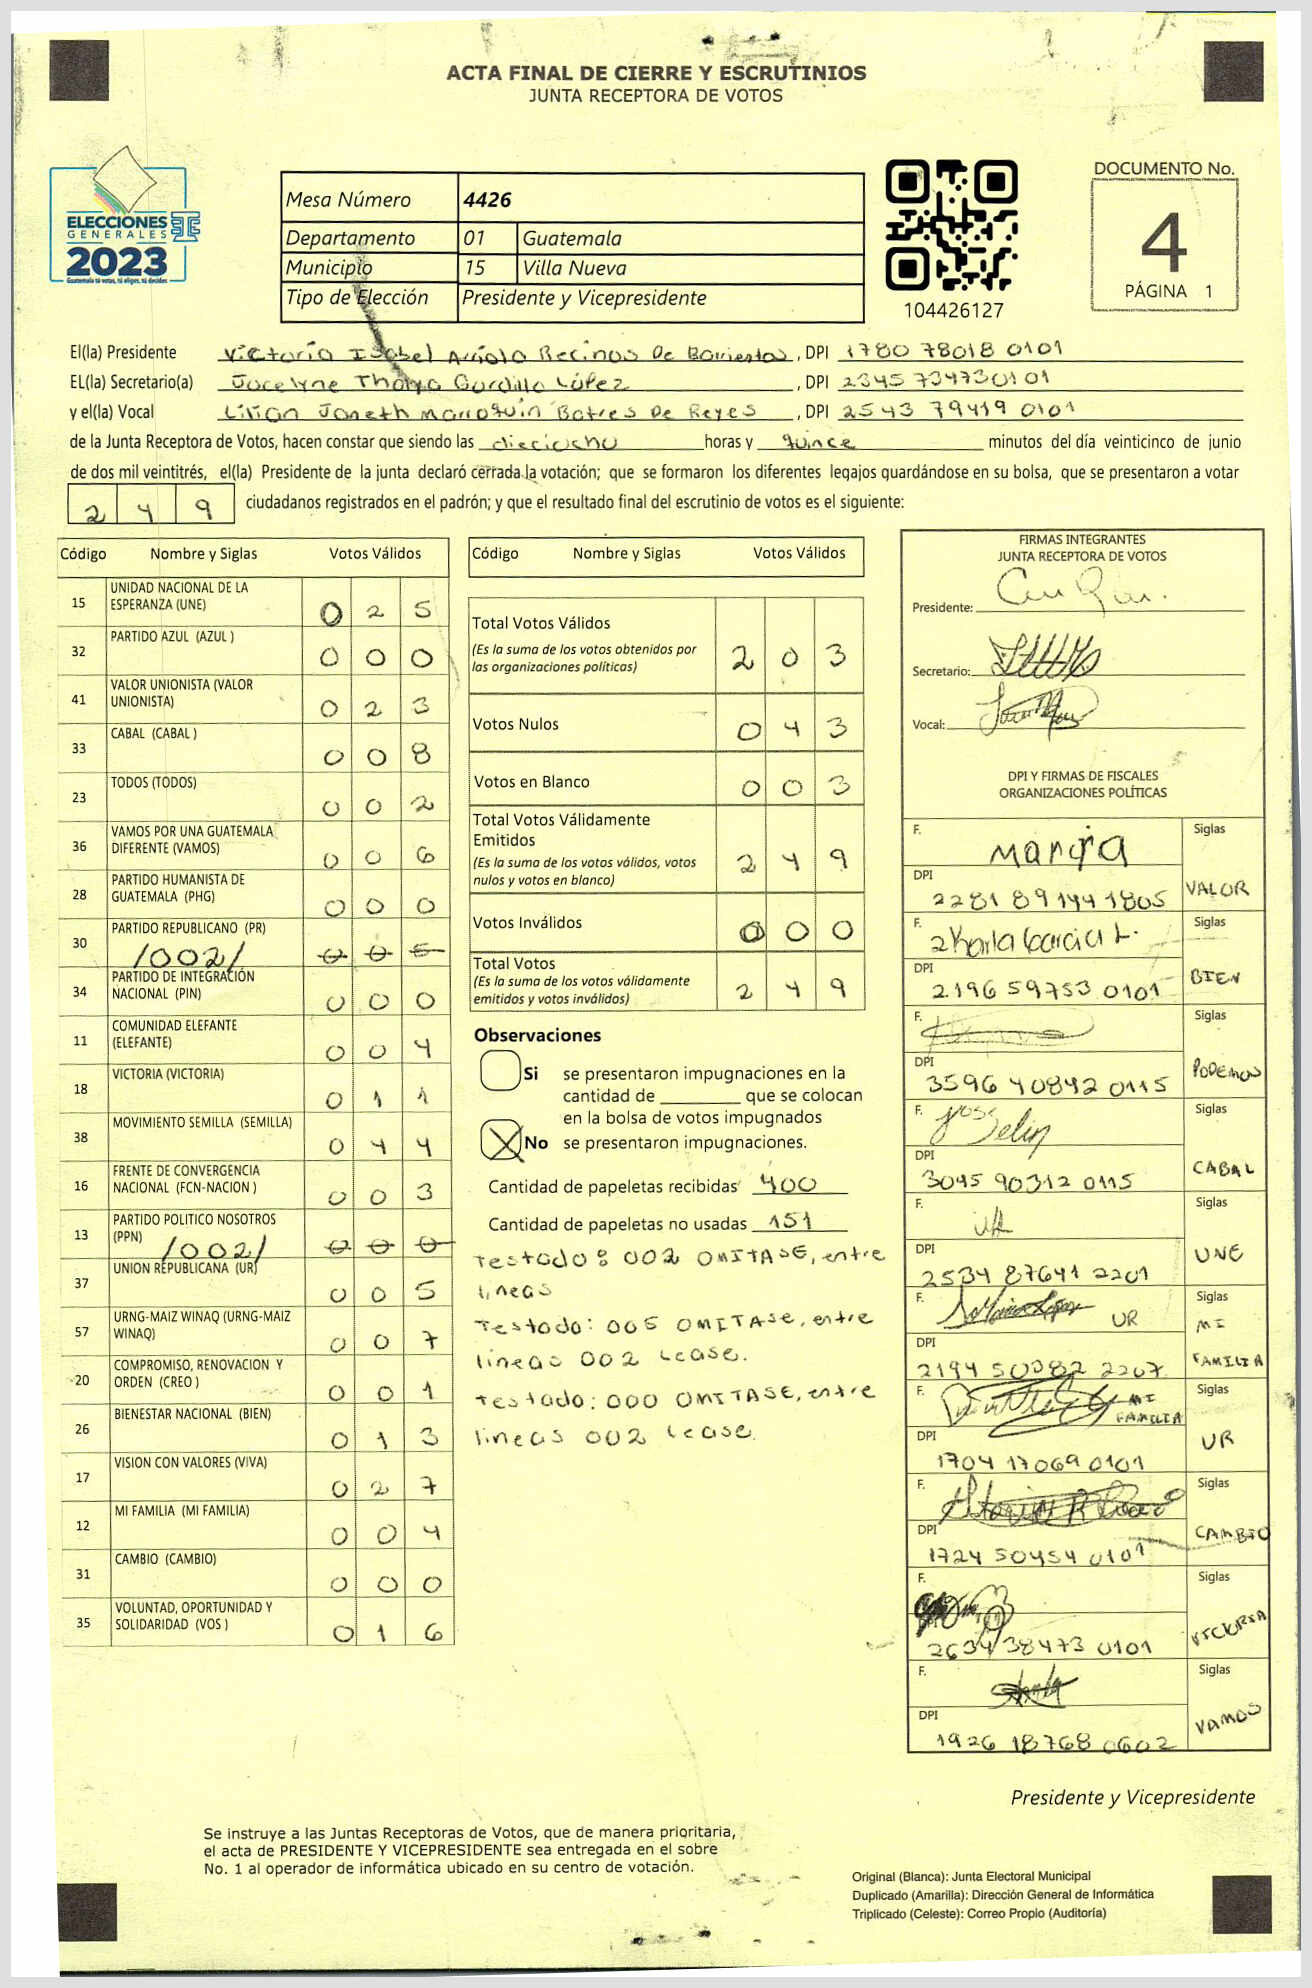 ACTA FINAL DE CIERRE Y ESCRUTINIOS
JUNTA RECEPTORA DE VOTOS
ELECCIONES
GENERALES
2023
Guatemala tú votas, tú eliges, tú decides
Mesa Número 4426
Departamento 01 Guatemala
Municipio 15 Villa Nueva
Tipo de Elección Presidente y Vicepresidente
104426127
DOCUMENTO No.
4
PÁGINA 1
El(la) Presidente Victoria Isabel Arriola Recinos De Barrientos, DPI 1780 78018 0101
EL(la) Secretario(a) Jocelyne Thalya Gordillo López, DPI 2345 73473 0101
y el(la) Vocal Lilian Janeth Marroquin Batres De Reyes, DPI 2543 79419 0101
de la Junta Receptora de Votos, hacen constar que siendo las dieciocho horas y quince minutos del día veinticinco de junio
de dos mil veintitrés, el(la) Presidente de la junta declaró cerrada la votación; que se formaron los diferentes legajos guardándose en su bolsa, que se presentaron a votar
2 4 9 ciudadanos registrados en el padrón; y que el resultado final del escrutinio de votos es el siguiente:
Código Nombre y Siglas Votos Válidos
15 UNIDAD NACIONAL DE LA ESPERANZA (UNE) 0 2 5
32 PARTIDO AZUL (AZUL ) 0 0 0
41 VALOR UNIONISTA (VALOR UNIONISTA) 0 2 3
33 CABAL (CABAL ) 0 0 8
23 TODOS (TODOS) 0 0 2
36 VAMOS POR UNA GUATEMALA DIFERENTE (VAMOS) 0 0 6
28 PARTIDO HUMANISTA DE GUATEMALA (PHG) 0 0 0
30 PARTIDO REPUBLICANO (PR) /002/ 0 0 5
34 PARTIDO DE INTEGRACIÓN NACIONAL (PIN) 0 0 0
11 COMUNIDAD ELEFANTE (ELEFANTE) 0 0 4
18 VICTORIA (VICTORIA) 0 1 1
38 MOVIMIENTO SEMILLA (SEMILLA) 0 4 4
16 FRENTE DE CONVERGENCIA NACIONAL (FCN-NACION ) 0 0 3
13 PARTIDO POLITICO NOSOTROS (PPN) /002/ 0 0 0
37 UNION REPUBLICANA (UR) 0 0 5
57 URNG-MAIZ WINAQ (URNG-MAIZ WINAQ) 0 0 7
20 COMPROMISO, RENOVACION Y ORDEN (CREO ) 0 0 1
26 BIENESTAR NACIONAL (BIEN) 0 1 3
17 VISION CON VALORES (VIVA) 0 2 7
12 MI FAMILIA (MI FAMILIA) 0 0 4
31 CAMBIO (CAMBIO) 0 0 0
35 VOLUNTAD, OPORTUNIDAD Y SOLIDARIDAD (VOS ) 0 1 6
Código Nombre y Siglas Votos Válidos
Total Votos Válidos 2 0 3
(Es la suma de los votos obtenidos por
las organizaciones políticas)
Votos Nulos 0 4 3
Votos en Blanco 0 0 3
Total Votos Válidamente
Emitidos 2 4 9
(Es la suma de los votos válidos, votos
nulos y votos en blanco)
Votos Inválidos 0 0 0
Total Votos 2 4 9
(Es la suma de los votos válidamente
emitidos y votos inválidos)
Observaciones
Si se presentaron impugnaciones en la
cantidad de ________ que se colocan
en la bolsa de votos impugnados
No se presentaron impugnaciones.
Cantidad de papeletas recibidas 400
Cantidad de papeletas no usadas 151
Testado: 002 OMITASE, entre
lineas
Testado: 005 OMITASE, entre
lineas 002 Lease.
Testado: 000 OMITASE, entre
lineas 002 Lease.
FIRMAS INTEGRANTES
JUNTA RECEPTORA DE VOTOS
Presidente:
Secretario:
Vocal:
DPI Y FIRMAS DE FISCALES
ORGANIZACIONES POLÍTICAS
F. Siglas
DPI 2281 89144 1805 VALOR
F. Karla Garcia L. Siglas
DPI 2196 59753 0101 BIEN
F. Siglas
DPI 3596 40842 0115 PODEMOS
F. Siglas
DPI 3045 90312 0115 CABAL
F. Siglas
DPI 2534 87641 2201 UNE
F. UR Siglas
DPI 2194 50382 2207 MI FAMILIA
F. MI FAMILIA Siglas
DPI 1704 17069 0101 UR
F. Siglas
DPI 1724 50454 0101 CAMBIO
F. Siglas
2634 38473 0101 VICTORIA
F. Siglas
DPI 1926 18768 0602 VAMOS
Presidente y Vicepresidente
Se instruye a las Juntas Receptoras de Votos, que de manera prioritaria,
el acta de PRESIDENTE Y VICEPRESIDENTE sea entregada en el sobre
No. 1 al operador de informática ubicado en su centro de votación.
Original (Blanca): Junta Electoral Municipal
Duplicado (Amarilla): Dirección General de Informática
Triplicado (Celeste): Correo Propio (Auditoría)